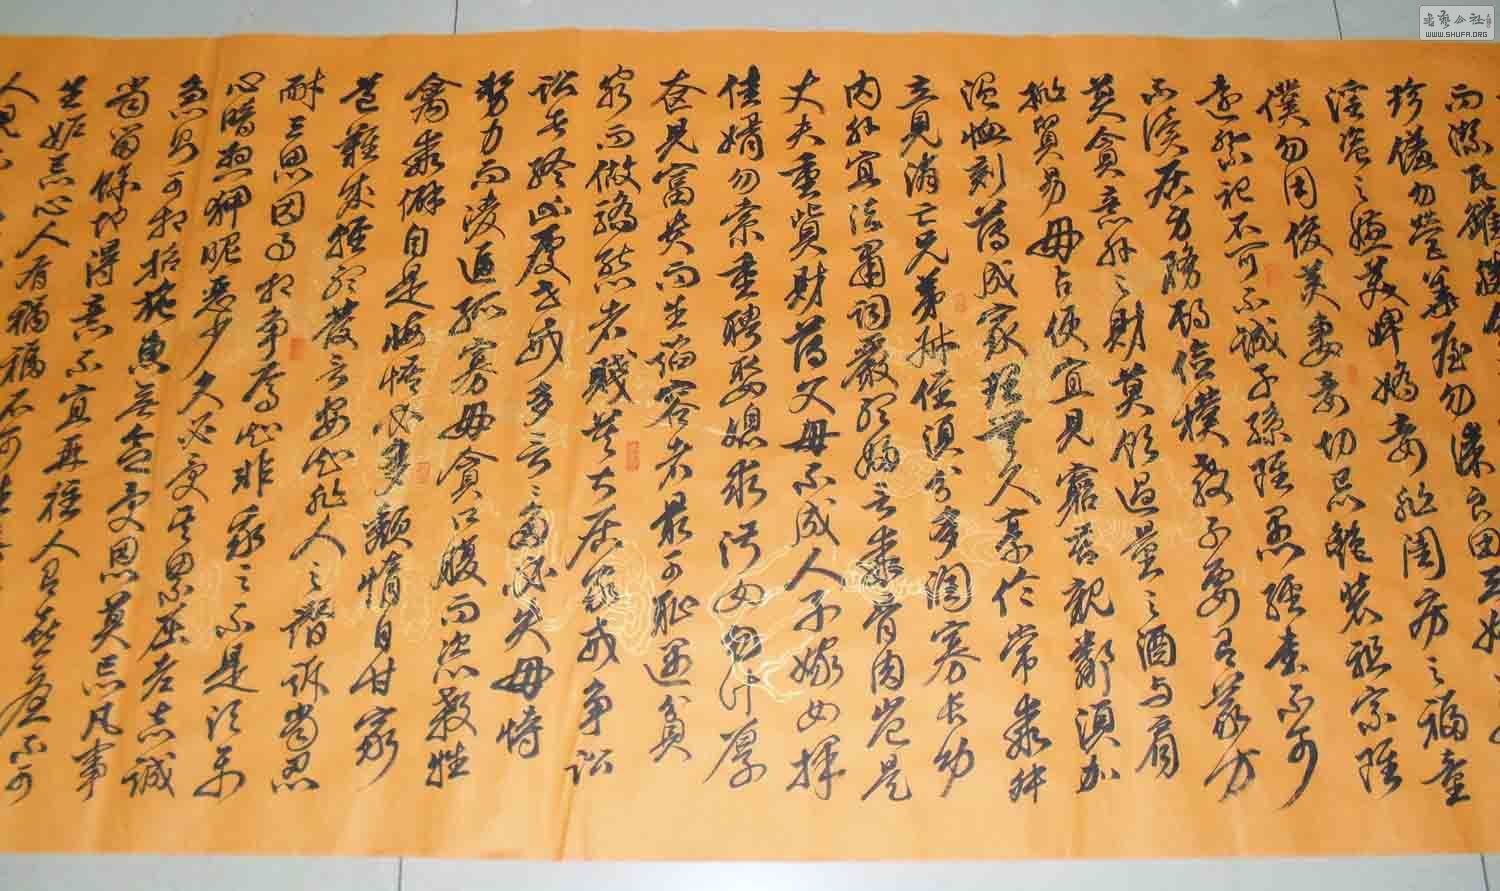 而潔瓦罐勝
珍饈勿營華屋勿謀良田三姑
淫盜之媒美婢嬌妾非閨房之福童
僕勿用俊美妻妾切忌艷裝祖宗雖
遠祭祀不可不誠子孫雖愚經書不可
不讀居身務期儉樸教子要有義方
莫貪意外之財莫飲過量之酒與肩
挑貿易毋占便宜見窮苦親鄰須加
溫恤刻薄成家理無久享倫常乖舛
立見消亡兄弟叔侄須分多潤寡長幼
內外宜法肅詞嚴聽婦言乖骨肉豈是
丈夫重資財薄父母不成人子嫁女擇
佳婿勿索重聘娶媳求淑女勿計厚
奩見富貴而生諂容者最可恥遇貧
窮而做驕態者賤莫大居家戒爭訟
訟則終凶處世戒多言言多必失毋恃
勢力而凌逼孤寡毋貪口腹而恣殺牲
禽乖僻自是悔悟必多頹惰自甘家
道難成輕聽發言安知非人之譖訴當忍
耐三思因事相爭焉知非我之不是須平
心暗想狎昵惡少久必受其累屈志老誠
急則可相依施惠無念受恩莫忘凡事
當留餘地得意不宜再往人有喜慶不可
生妒忌心人有禍患不可生
人見
書藝公社
WWW.SHUFA.ORG